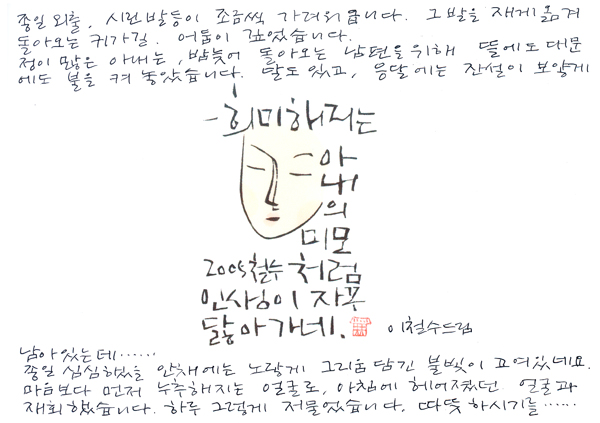 종일 외출, 시린 발등이 조금씩 가려워 옵니다. 그 발을 재게 옮겨
돌아오는 귀가길. 어둠이 깊었습니다.
정이 많은 아내는, 밤늦어 돌아오는 남편을 위해 뜰에도 대문
에도 불을 켜 놓았습니다. 달도 있고, 응달에는 잔설이 보얗게
-희미해지는
아
내
의
미모
2005 철수 처럼
인생이 자꾸
닳아가네.
이철수드림
남아있는데……
종일 심심했을 안채에는 노랗게 그리움 담긴 불빛이 고여있데요.
마음보다 먼저 누추해지는 얼굴로, 아침에 헤어졌던 얼굴과
재회했습니다. 하루 그렇게 저물었습니다. 따뜻하시기를……